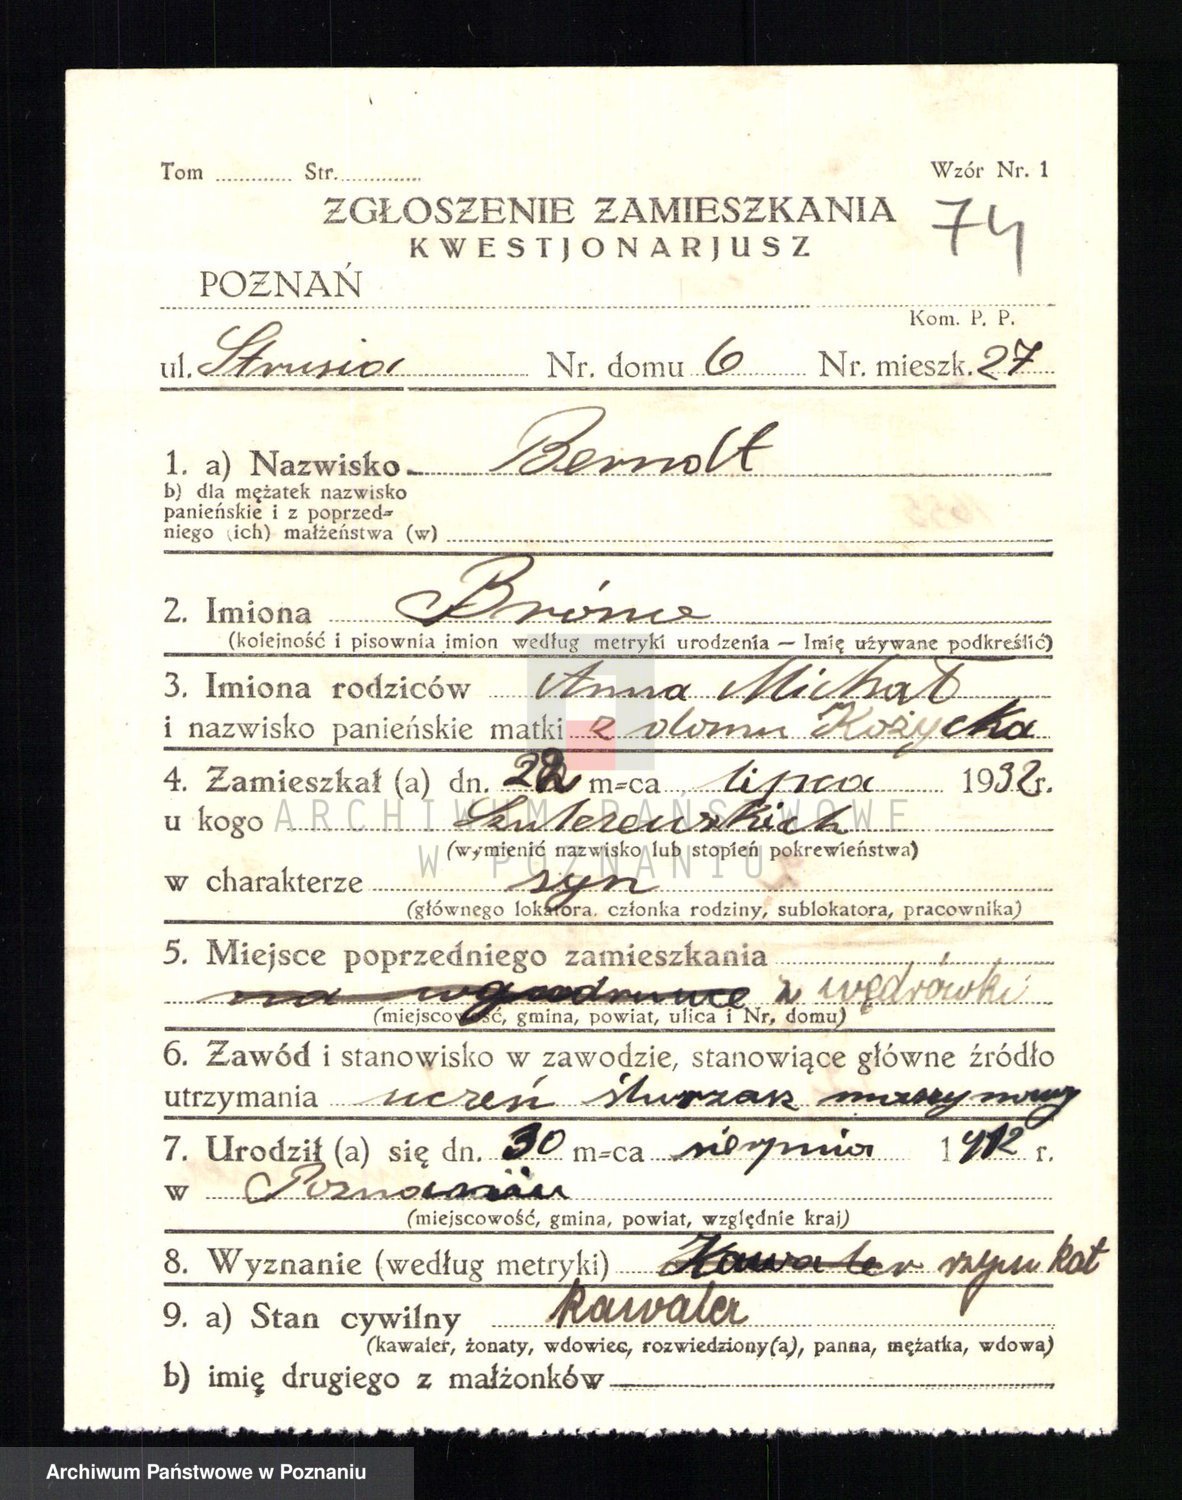 Tom ............ Str. ............. Wzór Nr. 1
ZGŁOSZENIE ZAMIESZKANIA 74
KWESTJONARJUSZ
POZNAŃ
Kom. P. P.
ul. Strusia Nr. domu 6 Nr. mieszk. 27
1. a) Nazwisko Berndt
b) dla mężatek nazwisko
panieńskie i z poprzed-
niego (ich) małżeństwa (w)
2. Imiona Bróno
(kolejność i pisownia imion według metryki urodzenia — Imię używane podkreślić)
3. Imiona rodziców Anna Michał
i nazwisko panieńskie matki z domu Kożycka
4. Zamieszkał (a) dn. 22 m-ca lipca 1932 r.
u kogo
ARCHIWUM PAŃSTWOWE
(wymienić nazwisko lub stopień pokrewieństwa)
W POZNANIU
w charakterze syn
(głównego lokatora, członka rodziny, sublokatora, pracownika)
5. Miejsce poprzedniego zamieszkania
na z wędrówki
(miejscowość, gmina, powiat, ulica i Nr. domu)
6. Zawód i stanowisko w zawodzie, stanowiące główne źródło
utrzymania uczeń
7. Urodził (a) się dn. 30 m-ca sierpnia 1912 r.
w Poznaniu
(miejscowość, gmina, powiat, względnie kraj)
8. Wyznanie (według metryki) Kawaler rzym kat
9. a) Stan cywilny kawaler
(kawaler, żonaty, wdowiec, rozwiedziony(a), panna, mężatka, wdowa)
b) imię drugiego z małżonków
Archiwum Państwowe w Poznaniu